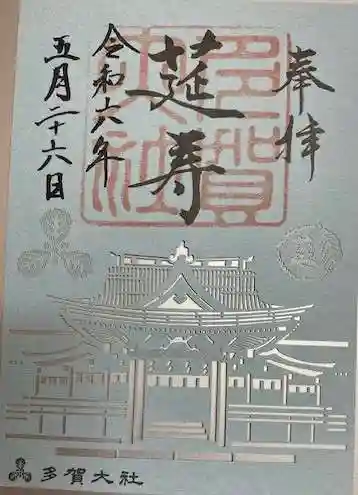 奉拝
延寿
令和六年
五月二十六日
多賀大社
多賀大社